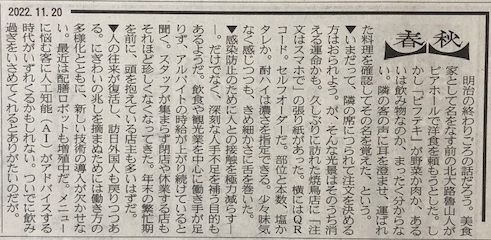 2022.11.20
春秋
明治の終わりごろの話だろう。美食
家として名をなす前の北大路魯山人が
ビアホールで洋食を頼もうとした。し
かし「ビフテキ」が野菜か肉か、ある
いは飲み物なのか、まったく分からな
い。隣の客の声に耳を澄ませ、運ばれ
た料理を確認してその名を覚えた、という。
▼いまだって、隣の席につられて注文を決める
方はおられよう。が、そんな光景はそのうち消
える運命かも。久しぶりに訪れた焼鳥店に「注
文はスマホで」の張り紙があった。横にはQR
コード。セルフオーダーだ。部位と本数、塩か
タレか。酎ハイは濃さを指定できる。少々味気
なく感じつつも、きめ細かさに舌を巻いた。
▼感染防止のために人との接触を極力減らす―
―。だけでなく、深刻な人手不足を補う目的も
あるようだ。飲食や観光業を中心に働き手が足
りず、アルバイトの時給が上がり続けていると
聞く。スタッフが集まらず閉店や休業する店も
それほど珍しくなくなってきた。年末の繁忙期
を前に、頭を抱えている店主も多いはずだ。
▼人の往来が復活し、訪日外国人も戻りつつあ
る。にぎわいの兆しを摘まぬためには働き方の
多様化とともに、新しい技術の導入が欠かせな
い。最近は配膳ロボットも増殖中だ。メニュー
に悩む客に人工知能（AI）がアドバイスする
時代がいずれくるかもしれない。ついでに飲み
過ぎをいさめてくれるとありがたいのだが。